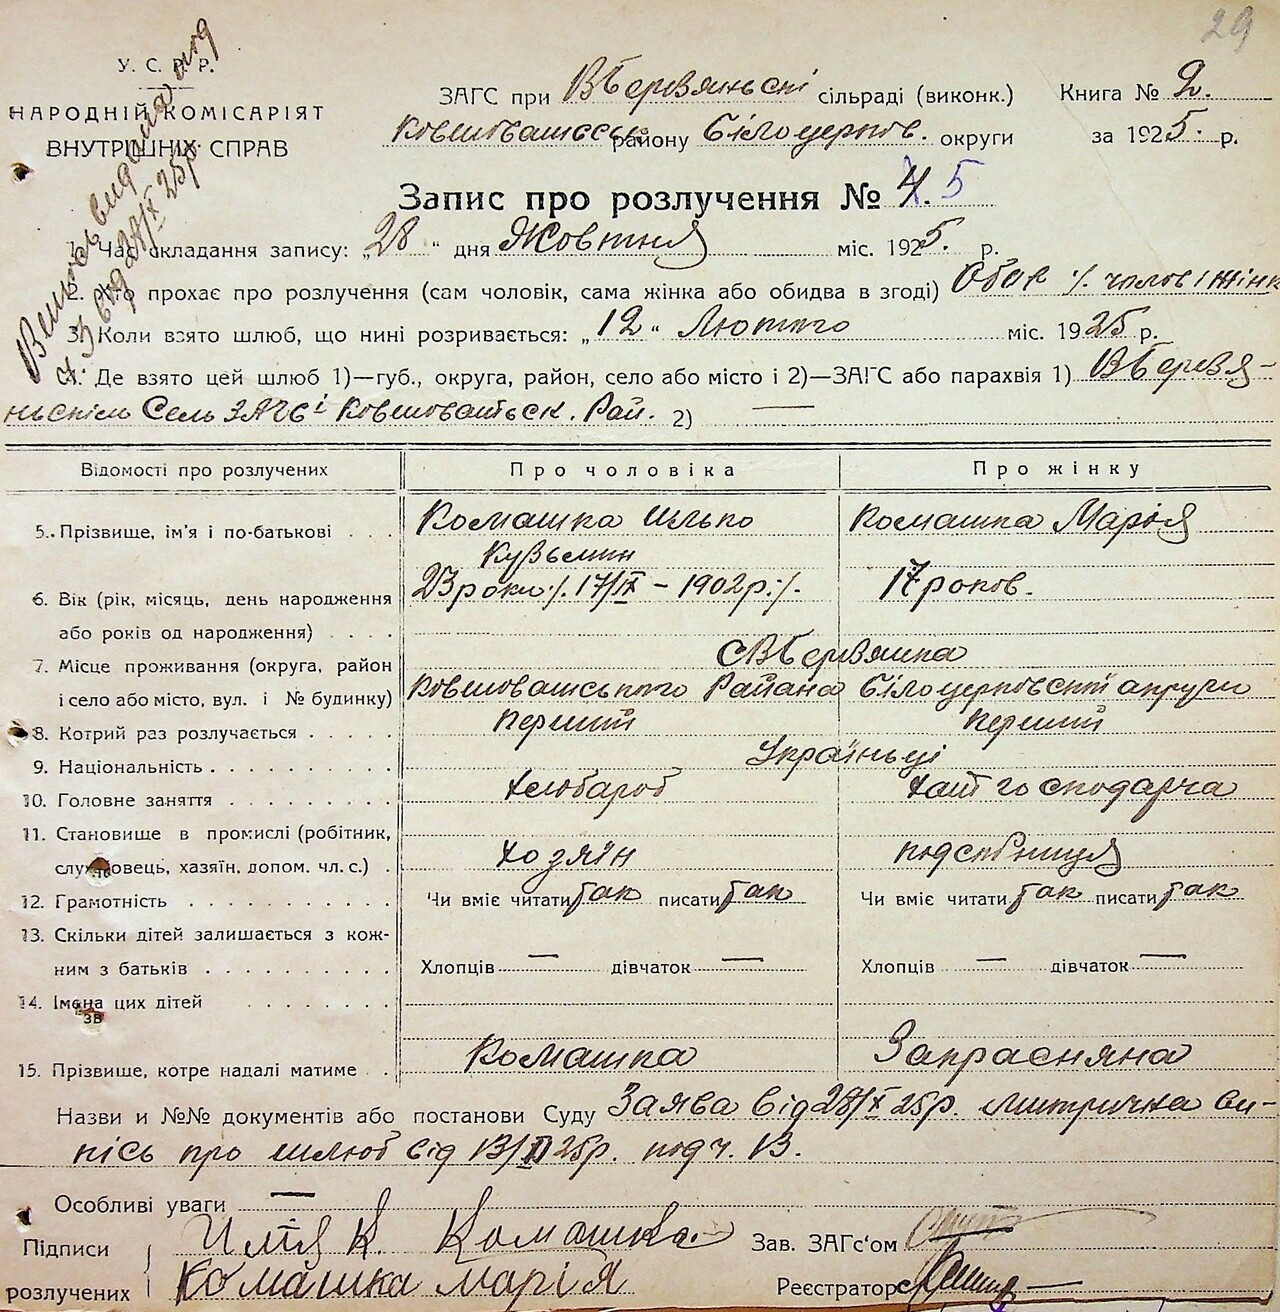 29
У. С. Р. Р.
НАРОДНІЙ КОМІСАРІЯТ
ВНУТРІШНІХ СПРАВ
ЗАГС при Вбервяньскі сільраді (виконк.) Книга № 2.
району Білоцерков. округи за 1925 р.
Запис про розлучення № 4. 5
1. Час складання запису: „28“ дня Жовтня міс. 1925. р.
2. Хто прохає про розлучення (сам чоловік, сама жінка або обидва в згоді) чолов і жінк
3. Коли взято шлюб, що нині розривається: „12“ Лютого міс. 1925 р.
4. Де взято цей шлюб 1)—губ., округа, район, село або місто і 2)—ЗАГС або парахвія 1) Вбервя-
ньскім Сель ЗАГСі Ковшоватьск. Рай. 2) —
Відомості про розлучених Про чоловіка Про жінку
5. Прізвище, ім'я і по-батькові . . . Комашка Илько Комашка Марія
Кузьмин
6. Вік (рік, місяць, день народження 23 роки ./. 17/IX – 1902 р ./. 17 роков.
або років од народження) . . . .
7. Місце проживання (округа, район СВбервянка
і село або місто, вул. і № будинку) Ковшовашського Района Білоцерковскої округи
8. Котрий раз розлучається . . . . . перший перший
9. Національність . . . . . . . . . . Українці
10. Головне заняття . . . . . . . . . хлобароб хат господарча
11. Становище в промислі (робітник,
службовець, хазяїн, допом. чл. с.) . хозяїн подсобниця
12. Грамотність . . . . . . . . . . . Чи вміє читати так писати так Чи вміє читати так писати так
13. Скільки дітей залишається з кож-
ним з батьків . . . . . . . . . . Хлопців — дівчаток — Хлопців — дівчаток —
14. Імена цих дітей . . . . . . . .
зв
15. Прізвище, котре надалі матиме . . Комашка Запрасняна
Назви и №№ документів або постанови Суду Заява від 28/X 25р. митрична ви-
пісь про шлюб від 13/II 25р. под ч. 13.
Особливі уваги —
Підписи Илля К. Комашка. Зав. ЗАГс'ом
розлучених Комашка марія Реєстратор